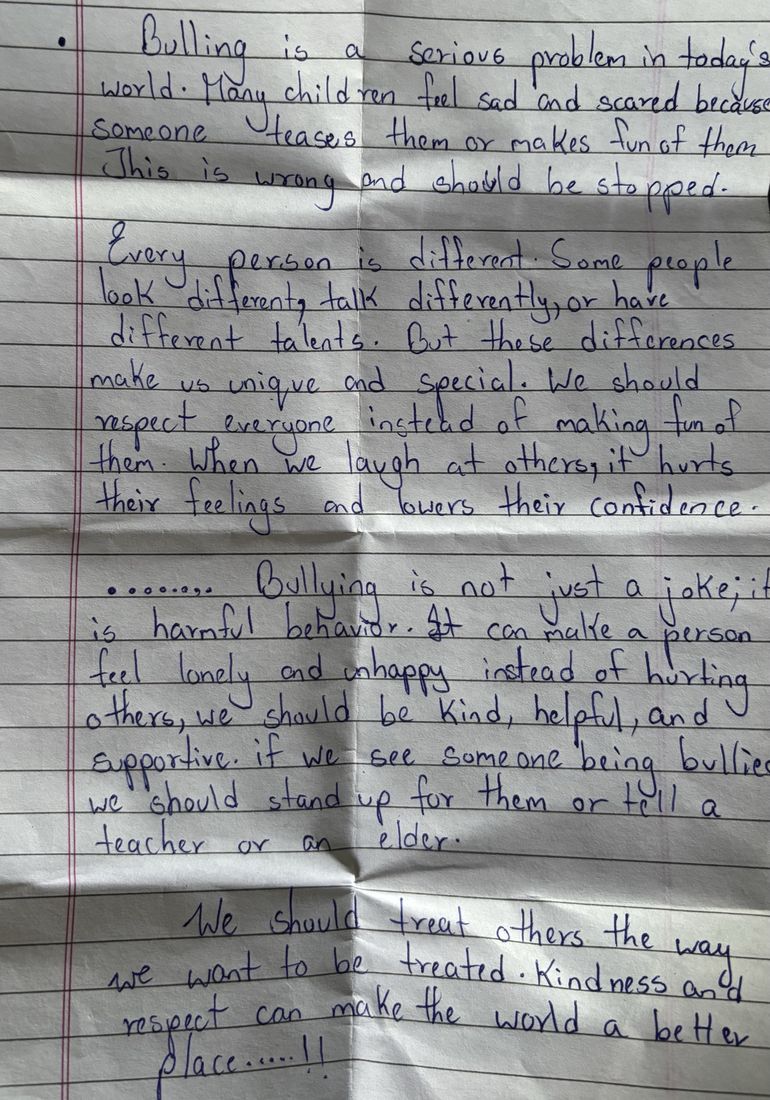 • Bulling is a serious problem in today's
world. Many children feel sad and scared because
someone teases them or makes fun of them
This is wrong and should be stopped.
Every person is different. Some people
look different, talk differently, or have
different talents. But these differences
make us unique and special. We should
respect everyone instead of making fun of
them. When we laugh at others, it hurts
their feelings and lowers their confidence.
......... Bullying is not just a joke; it
is harmful behavior. It can make a person
feel lonely and unhappy instead of hurting
others, we should be kind, helpful, and
supportive. if we see someone being bullied
we should stand up for them or tell a
teacher or an elder.
We should treat others the way
we want to be treated. Kindness and
respect can make the world a better
place.....!!